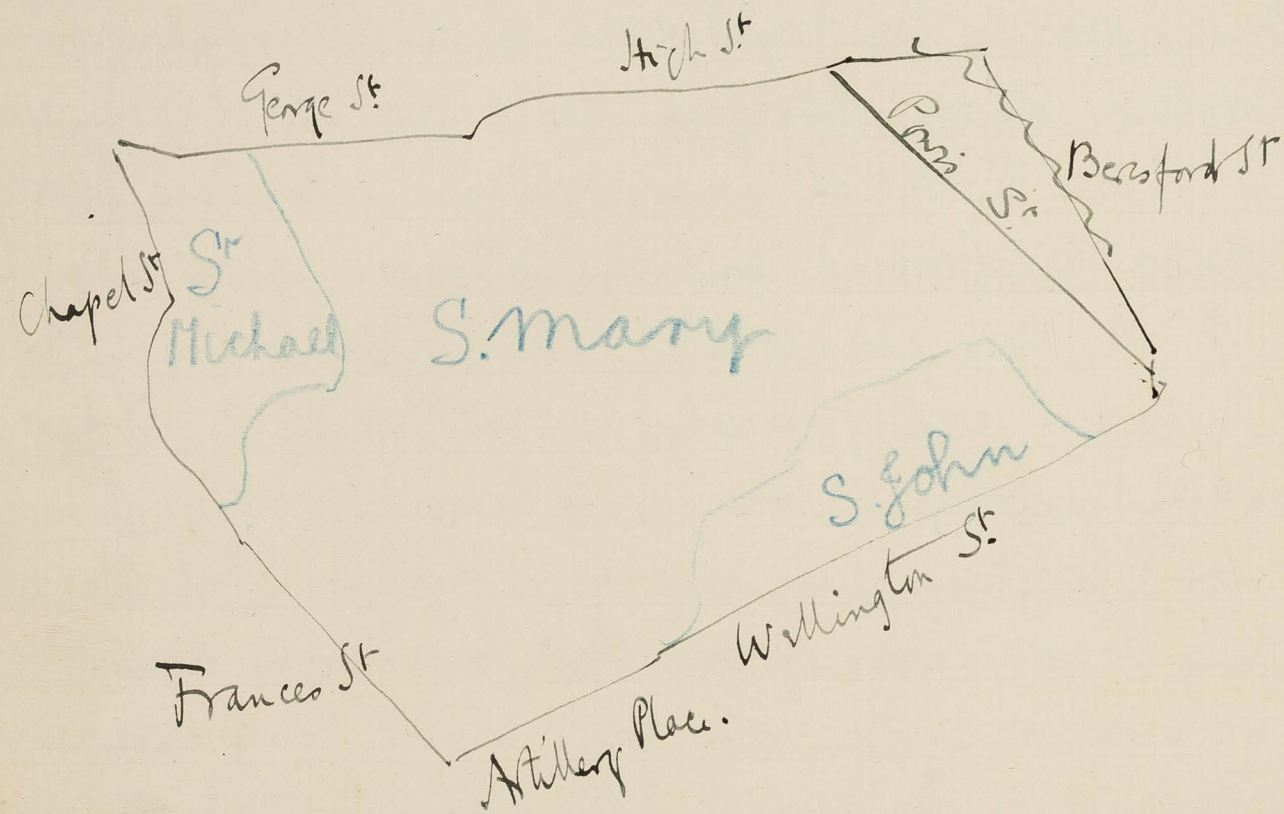 High St
George St.
Beresford St
Chapel St
St
Michael
S. Mary
S. John
Wellington St.
Frances St
Artillery Place.